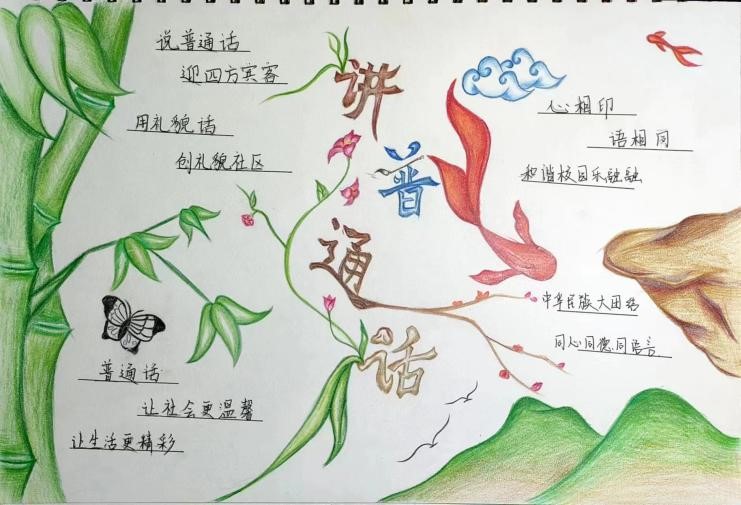 讲普通话
说普通话
迎四方宾客
用礼貌话
创礼貌社区
普通话
让社会更温馨
让生活更精彩
心相印
语相同
和谐校园乐融融
中华民族大团结
同心同德同语言